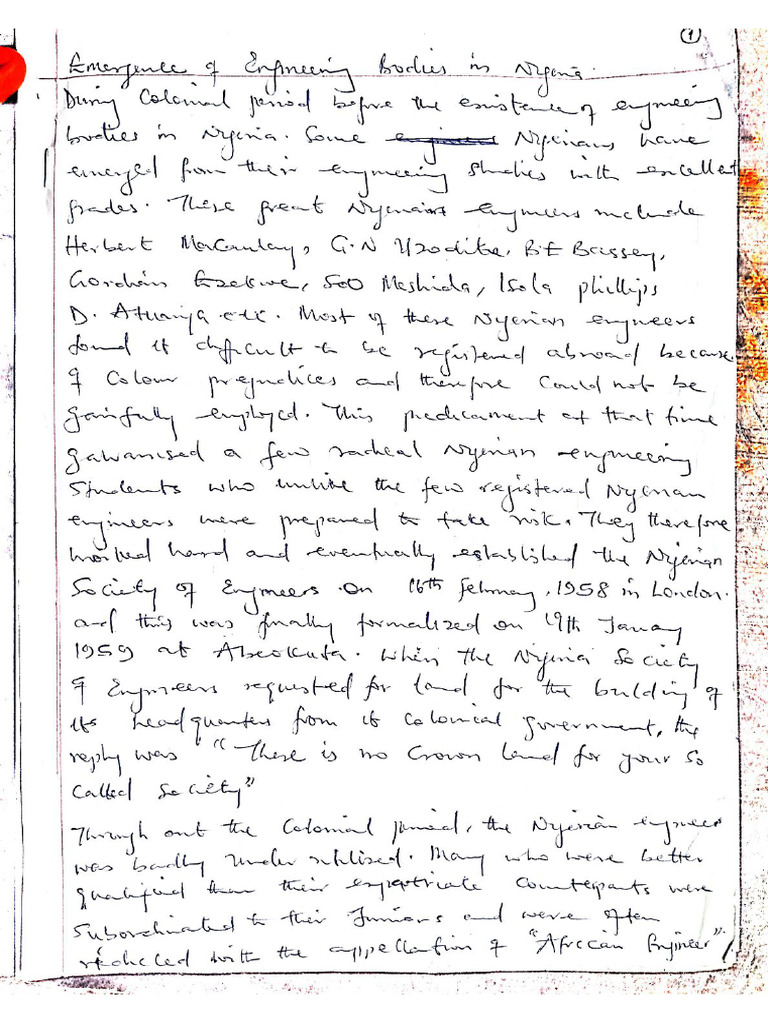 (1)
Emergence of Engineering Bodies in Nigeria.
During Colonial period before the existence of engineering
bodies in Nigeria. Some engineers Nigerians have
emerged from their engineering studies with excellent
grades. These great Nigerians engineers include
Herbert Macaulay, G.N Uzodike, B.E Bassey,
Gordian Ezekwe, SOO Meshida, Isola phillips
D. Atuanya etc. Most of these Nigerian engineers
found it difficult to be registered abroad because
of Colour prejudices and therefore could not be
gainfully employed. This predicament at that time
galvanised a few radical Nigerian engineering
Students who unlike the few registered Nigerian
engineers were prepared to take risk. They therefore
worked hard and eventually established the Nigerian
Society of Engineers on 16th February, 1958 in London.
and this was finally formalized on 19th January
1959 at Abeokuta. When the Nigeria Society
of Engineers requested for land for the building of
its headquarters from it Colonial government, the
reply was "There is no Crown land for your so
called society"
Through out the Colonial period, the Nigerian engineer
was badly under utilised. Many who were better
qualified than their expatriate counterparts were
subordinated to their Juniors and were often
ridiculed with the appellation of "African Engineer".